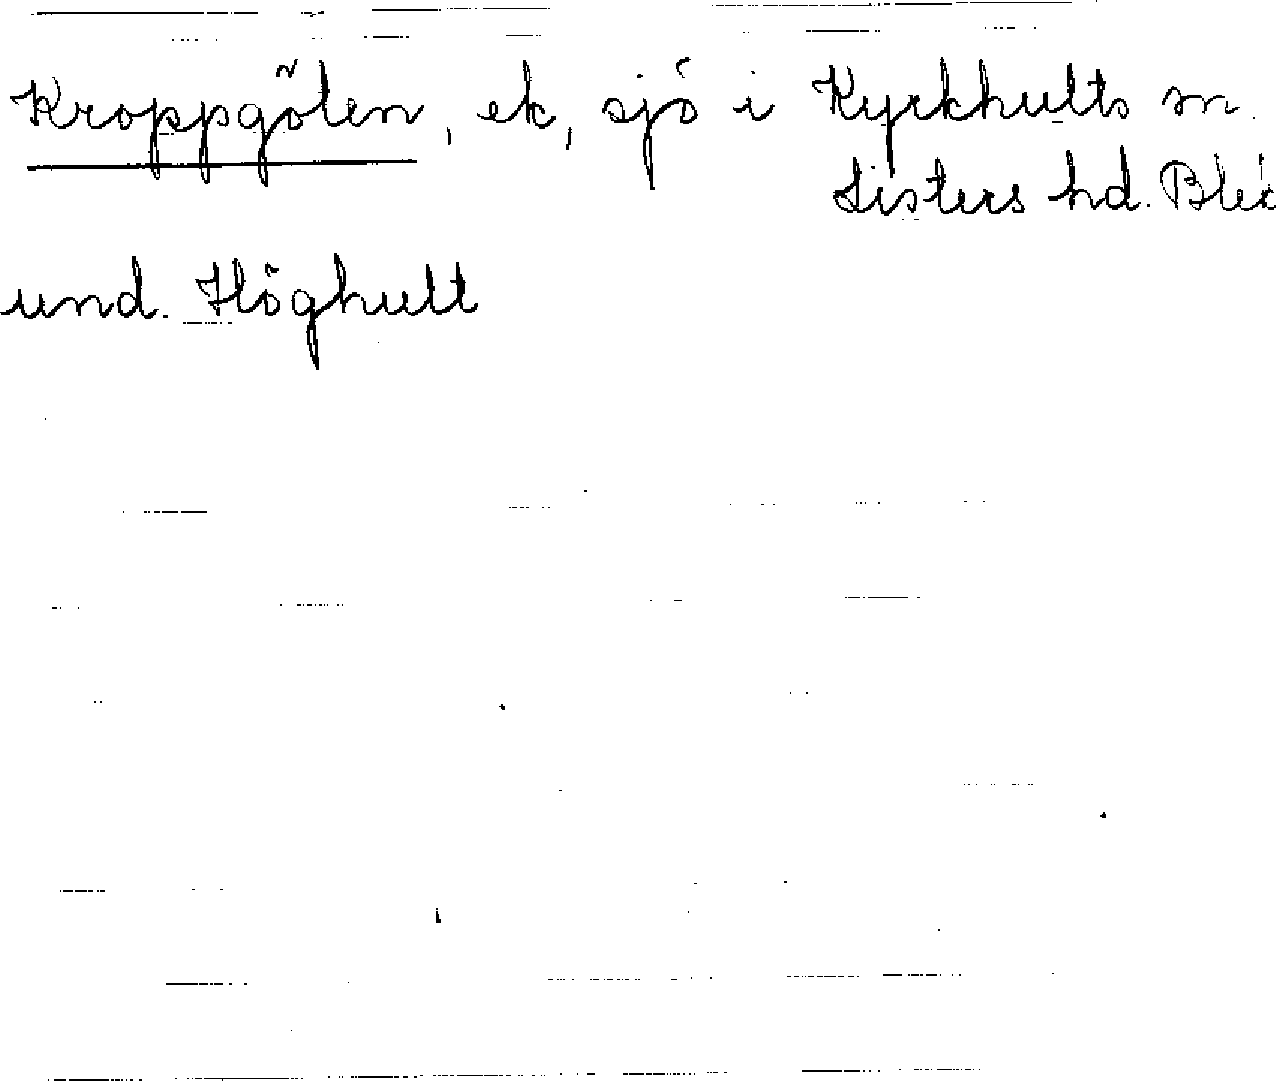 Kroppgölen, ek, sjö i Kyrkhults sn.
Listers hd. Blek
und. Höghult